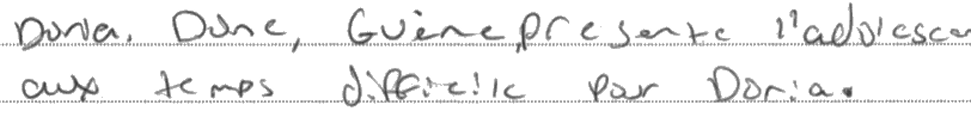 Doria. Dune, Guène, présente l'adolescen
aux temps difficile par Doria.